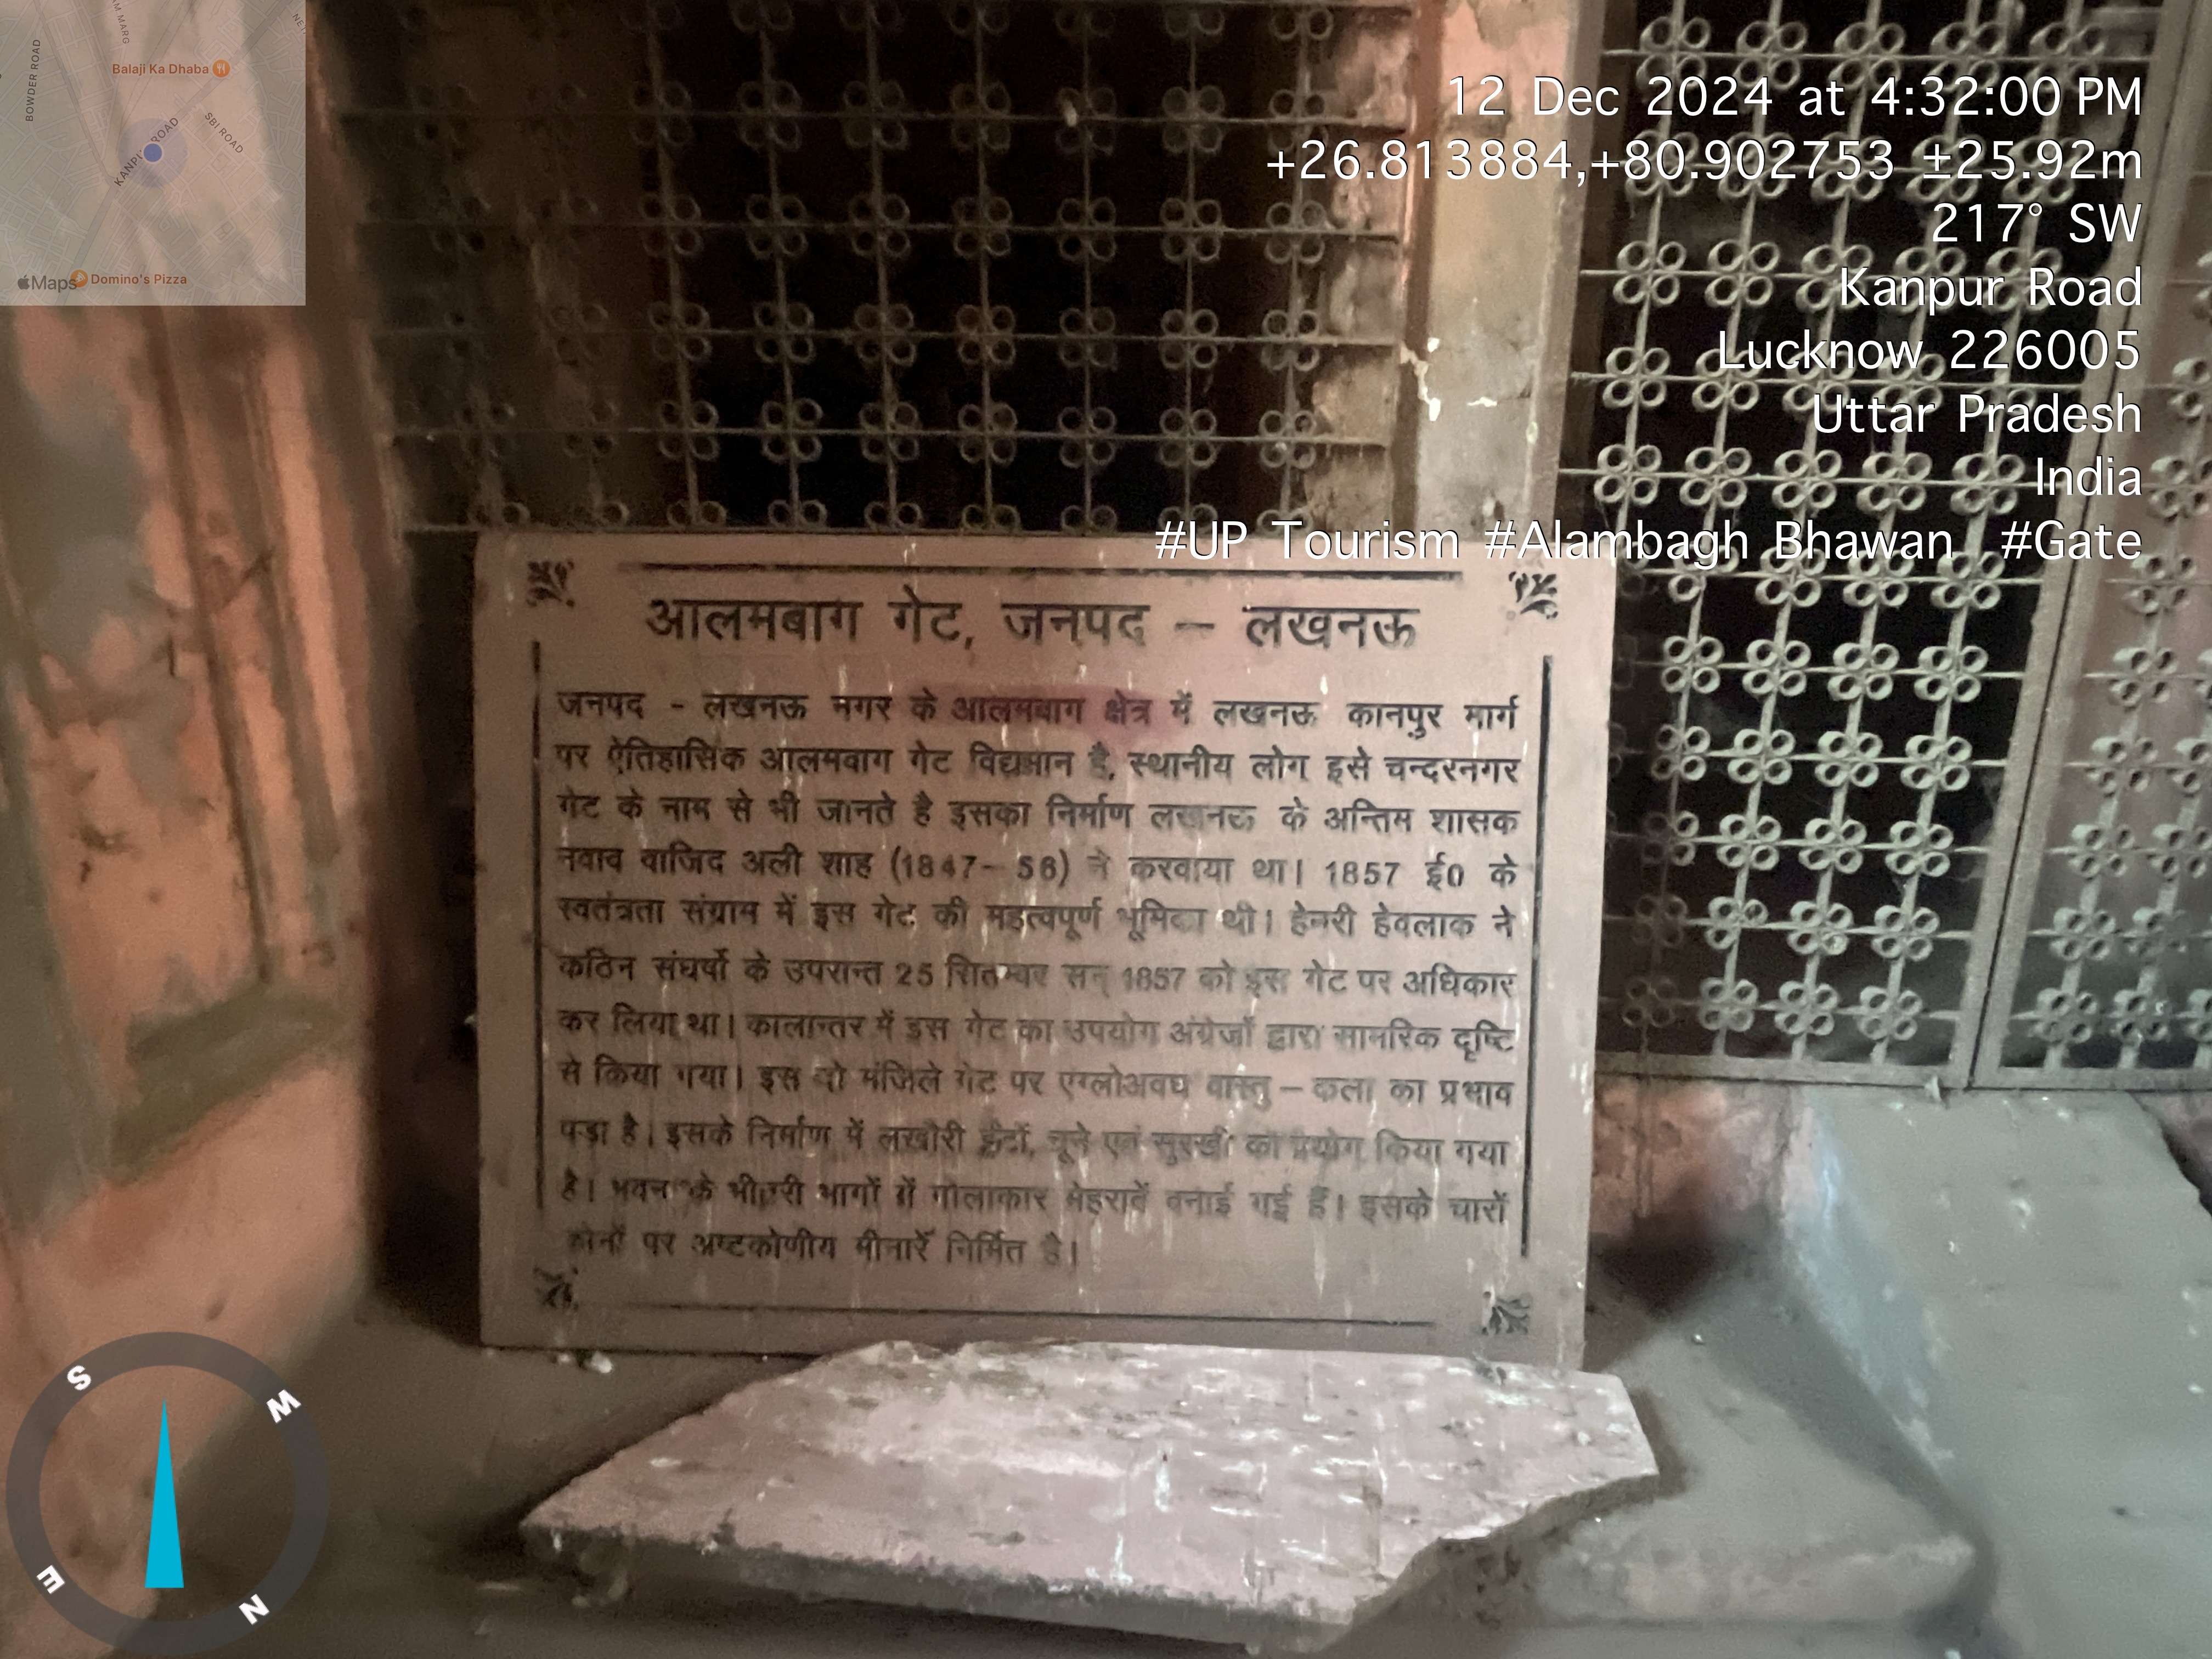 BOWDER ROAD
M MARG
Balaji Ka Dhaba
SBI ROAD
Maps
Domino's Pizza
12 Dec 2024 at 4:32:00 PM
+26.813884,+80.902753 ±25.92m
217° SW
Kanpur Road
Lucknow 226005
Uttar Pradesh
India
#UP Tourism #Alambagh Bhawan #Gate
आलमबाग गेट, जनपद – लखनऊ
जनपद - लखनऊ नगर के आलमबाग क्षेत्र में लखनऊ कानपुर मार्ग
पर ऐतिहासिक आलमबाग गेट विद्यमान है, स्थानीय लोग इसे चन्दरनगर
गेट के नाम से भी जानते है इसका निर्माण लखनऊ के अन्तिम शासक
नवाब वाजिद अली शाह (1847- 56) ने करवाया था। 1857 ई0 के
स्वतंत्रता संग्राम में इस गेट की महत्वपूर्ण भूमिका थी। हेनरी हेवलाक ने
कठिन संघर्षो के उपरान्त 25 सितम्बर सन् 1857 को इस गेट पर अधिकार
कर लिया था। कालान्तर में इस गेट का उपयोग अंग्रेजों द्वारा सामरिक दृष्टि
से किया गया। इस दो मंजिले गेट पर एंग्लोअवध वास्तु – कला का प्रभाव
पड़ा है। इसके निर्माण में लखौरी ईंटों, चूने एवं सुरखी का प्रयोग किया गया
है। भवन के भीतरी भागों में गोलाकार मेहराबें बनाई गई हैं। इसके चारों
कोनों पर अष्टकोणीय मीनारें निर्मित है।
S
W
E
N